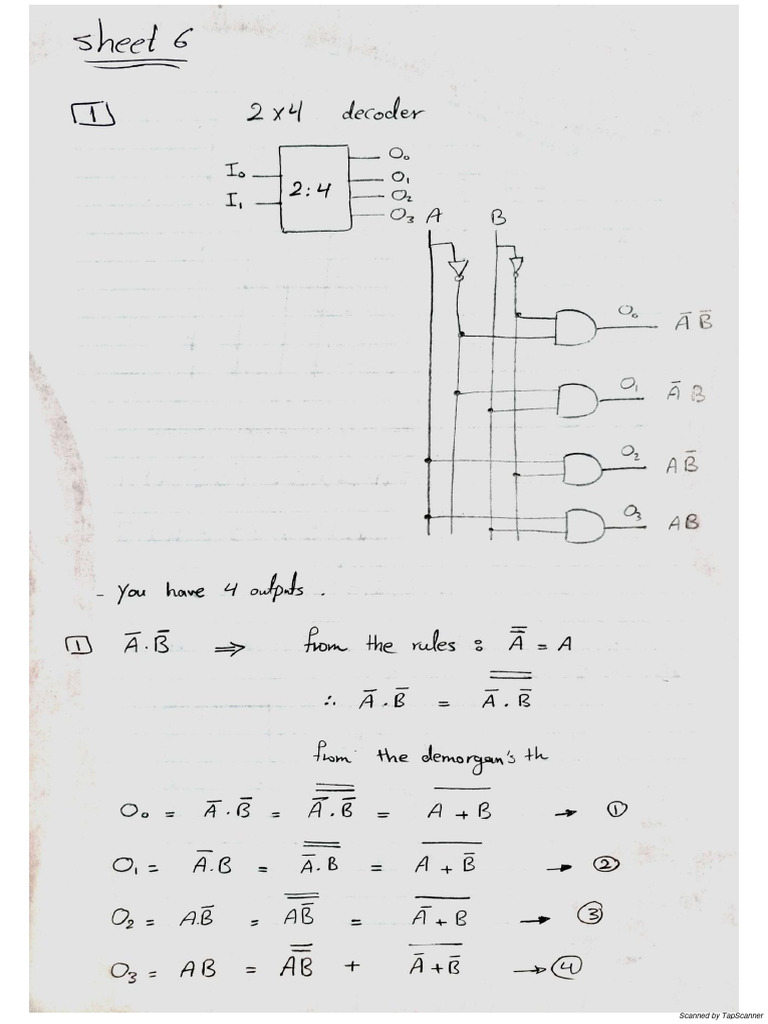 sheet 6
1 2 x 4 decoder
I₀ 2:4 O₀
I₁ O₁
O₂
O₃ A B
O₀ A̅ B̅
O₁ A̅ B
O₂ A B̅
O₃ A B
- You have 4 outputs .
1 A̅ . B̅ ⇒ from the rules : A̿ = A
∴ A̅ . B̅ = \overline{\overline{A̅ . B̅}}
from the demorgan's th
O₀ = A̅ . B̅ = \overline{\overline{A̅ . B̅}} = \overline{A + B} → ①
O₁ = A̅ . B = \overline{\overline{A̅ . B}} = \overline{A + B̅} → ②
O₂ = A . B̅ = \overline{\overline{A B̅}} = \overline{A̅ + B} → ③
O₃ = A B = \overline{\overline{A B}} + \overline{A̅ + B̅} → ④
Scanned by TapScanner